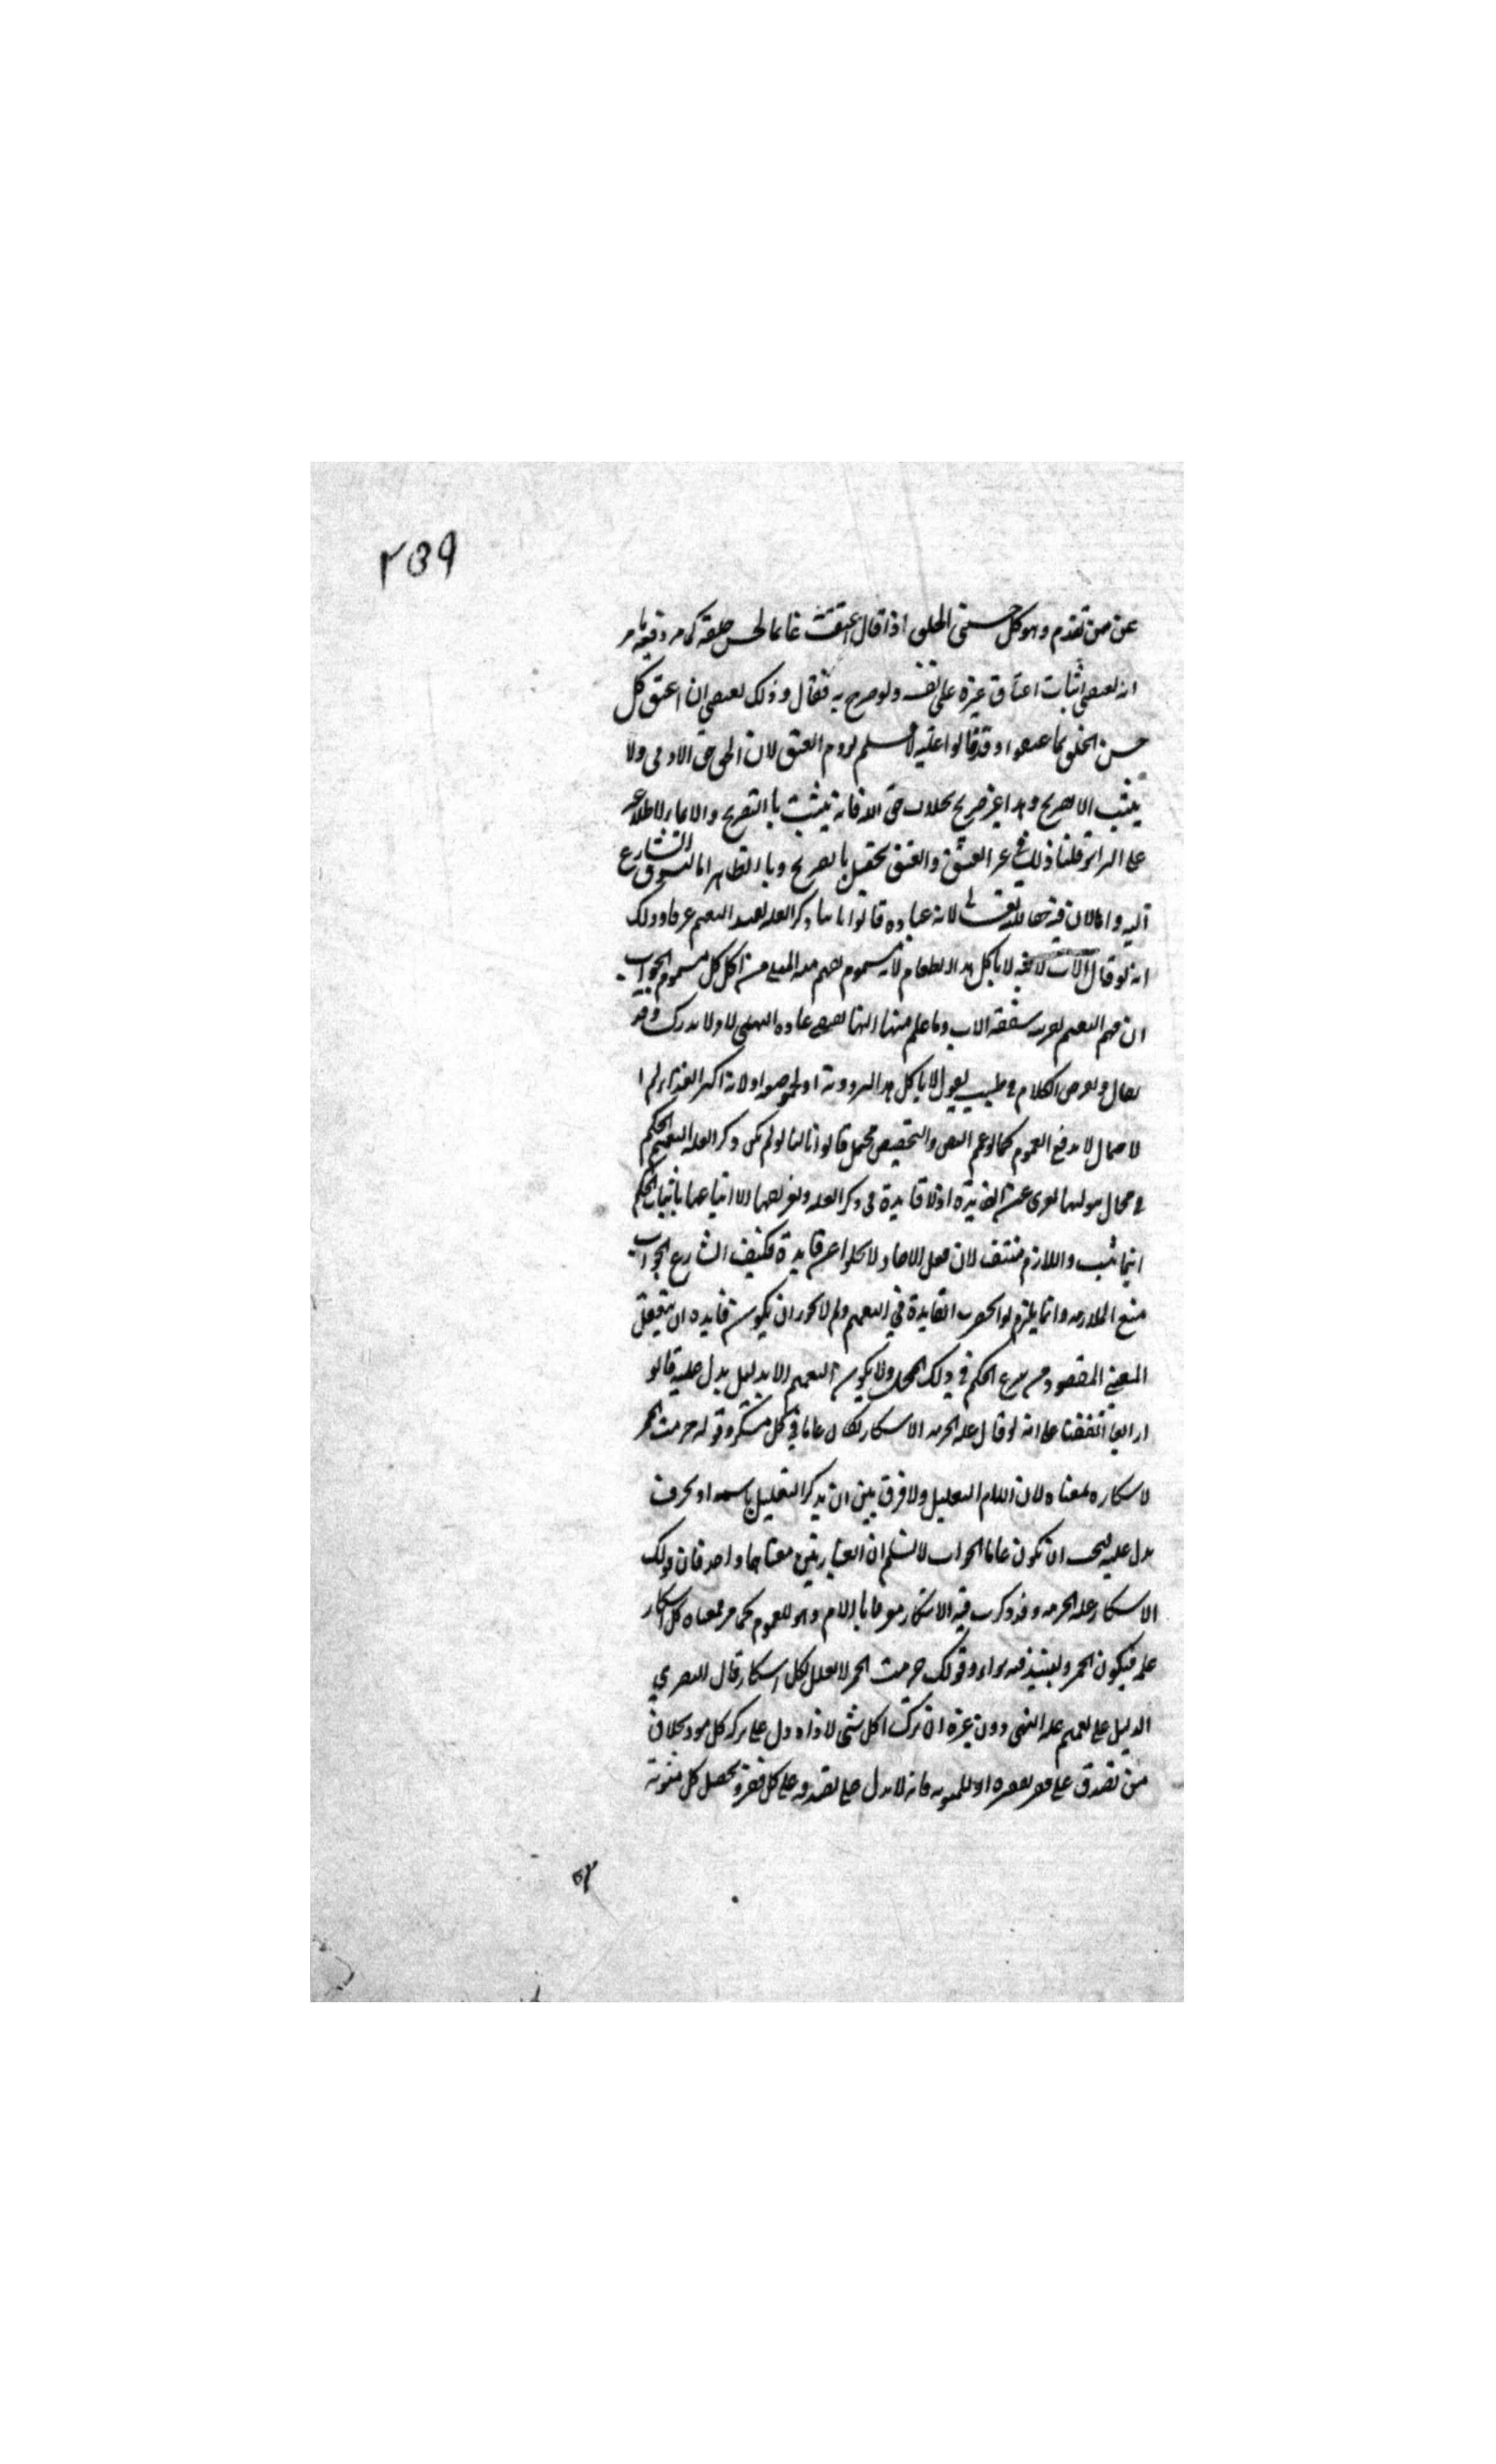 ٢٥٩
عن من تقدم وهو كل حسنى الخلق اذا قال اعتقت غانما لحسن خلقه كما مر وفيه ما مر
انه لعصى اثبات اعتاق غيره على نفسه ولو صرح به فقال وذلك لعصى ان اعتق كل
حسن الخلق وقد قالوا عليه لا نسلم لزوم العتق لان الحق حق الادمى ولا
يثبت الا بصريح وهذا غير صريح بخلاف حق الله فانه يثبت بالتصريح والايماء لاطلاعه
على السرائر قلنا ذلك فى غير العتق والعتق يحصل بالصريح وبالظاهر اما لتشوق الشارع
اليه واما لان فيه حقا لله تعالى لانه عباده قالوا ثانيا ذكر العله يفيد التعميم عرفا وذلك
انه لو قال الاب لابنه لا تاكل هذا الطعام لانه مسموم فهم منه المنع من اكل كل مسموم الجواب
ان فهم التعميم لقرينه شفقه الاب وما علم منها انها عاده النهى
يقول لا تاكل هذا لبرودته او لحموضه او لانه اكبر الغذاء
لا يدفع العموم كما لو عم النص والتخصيص محتمل قالوا ثالثا لو لم يكن ذكر العله لتعميم الحكم
فى محال ثبوتها لعرى عن الفائدة اذ لا فايدة فى ذكر العله وتعريفها الا اتباعها باثبات الحكم
اينما ثبت واللازم منتف لان فعل الاحاد لا يخلوا عن فايدة فكيف الشارع الجواب
منع الملازمه وانما يلزم لو انحصرت الفايدة فى التعميم ولم لا يجوز ان يكون فايده ان يتعقل
المعنى المقصود من شرع الحكم فى ذلك المحل ولا يكون التعميم الا بدليل يدل عليه قالوا
رابعا اتفقنا على انه لو قال عله الحرمه الاسكار لكان عاما فى كل مسكر وقوله حرمت الخمر
لاسكاره بمعناه لان اللام للتعليل ولا فرق بين ان يذكر التعليل باسمه او بحرف
يدل عليه فيجب ان تكون عاما الجواب لا نسلم ان العبارتين معناهما واحد فان قولك
الاسكار عله الحرمه وقد ذكرت فيه الاسكار معرفا باللام وهو للعموم كما مر فمعناه كل اسكار
عله فيكون الخمر والنبيذ فيه سواء وقولك حرمت الخمر لا يعلل بكل اسكار قال البصري
الدليل على تعميم عله النهى دون غيره ان ترك اكل شئ لاذاه دل على تركه كل موذ بخلاف
من تصدق على فقير لفقره او للمثوبه فانه لا يدل على تصدقه على كل فقير وتحصل كل مثوبة